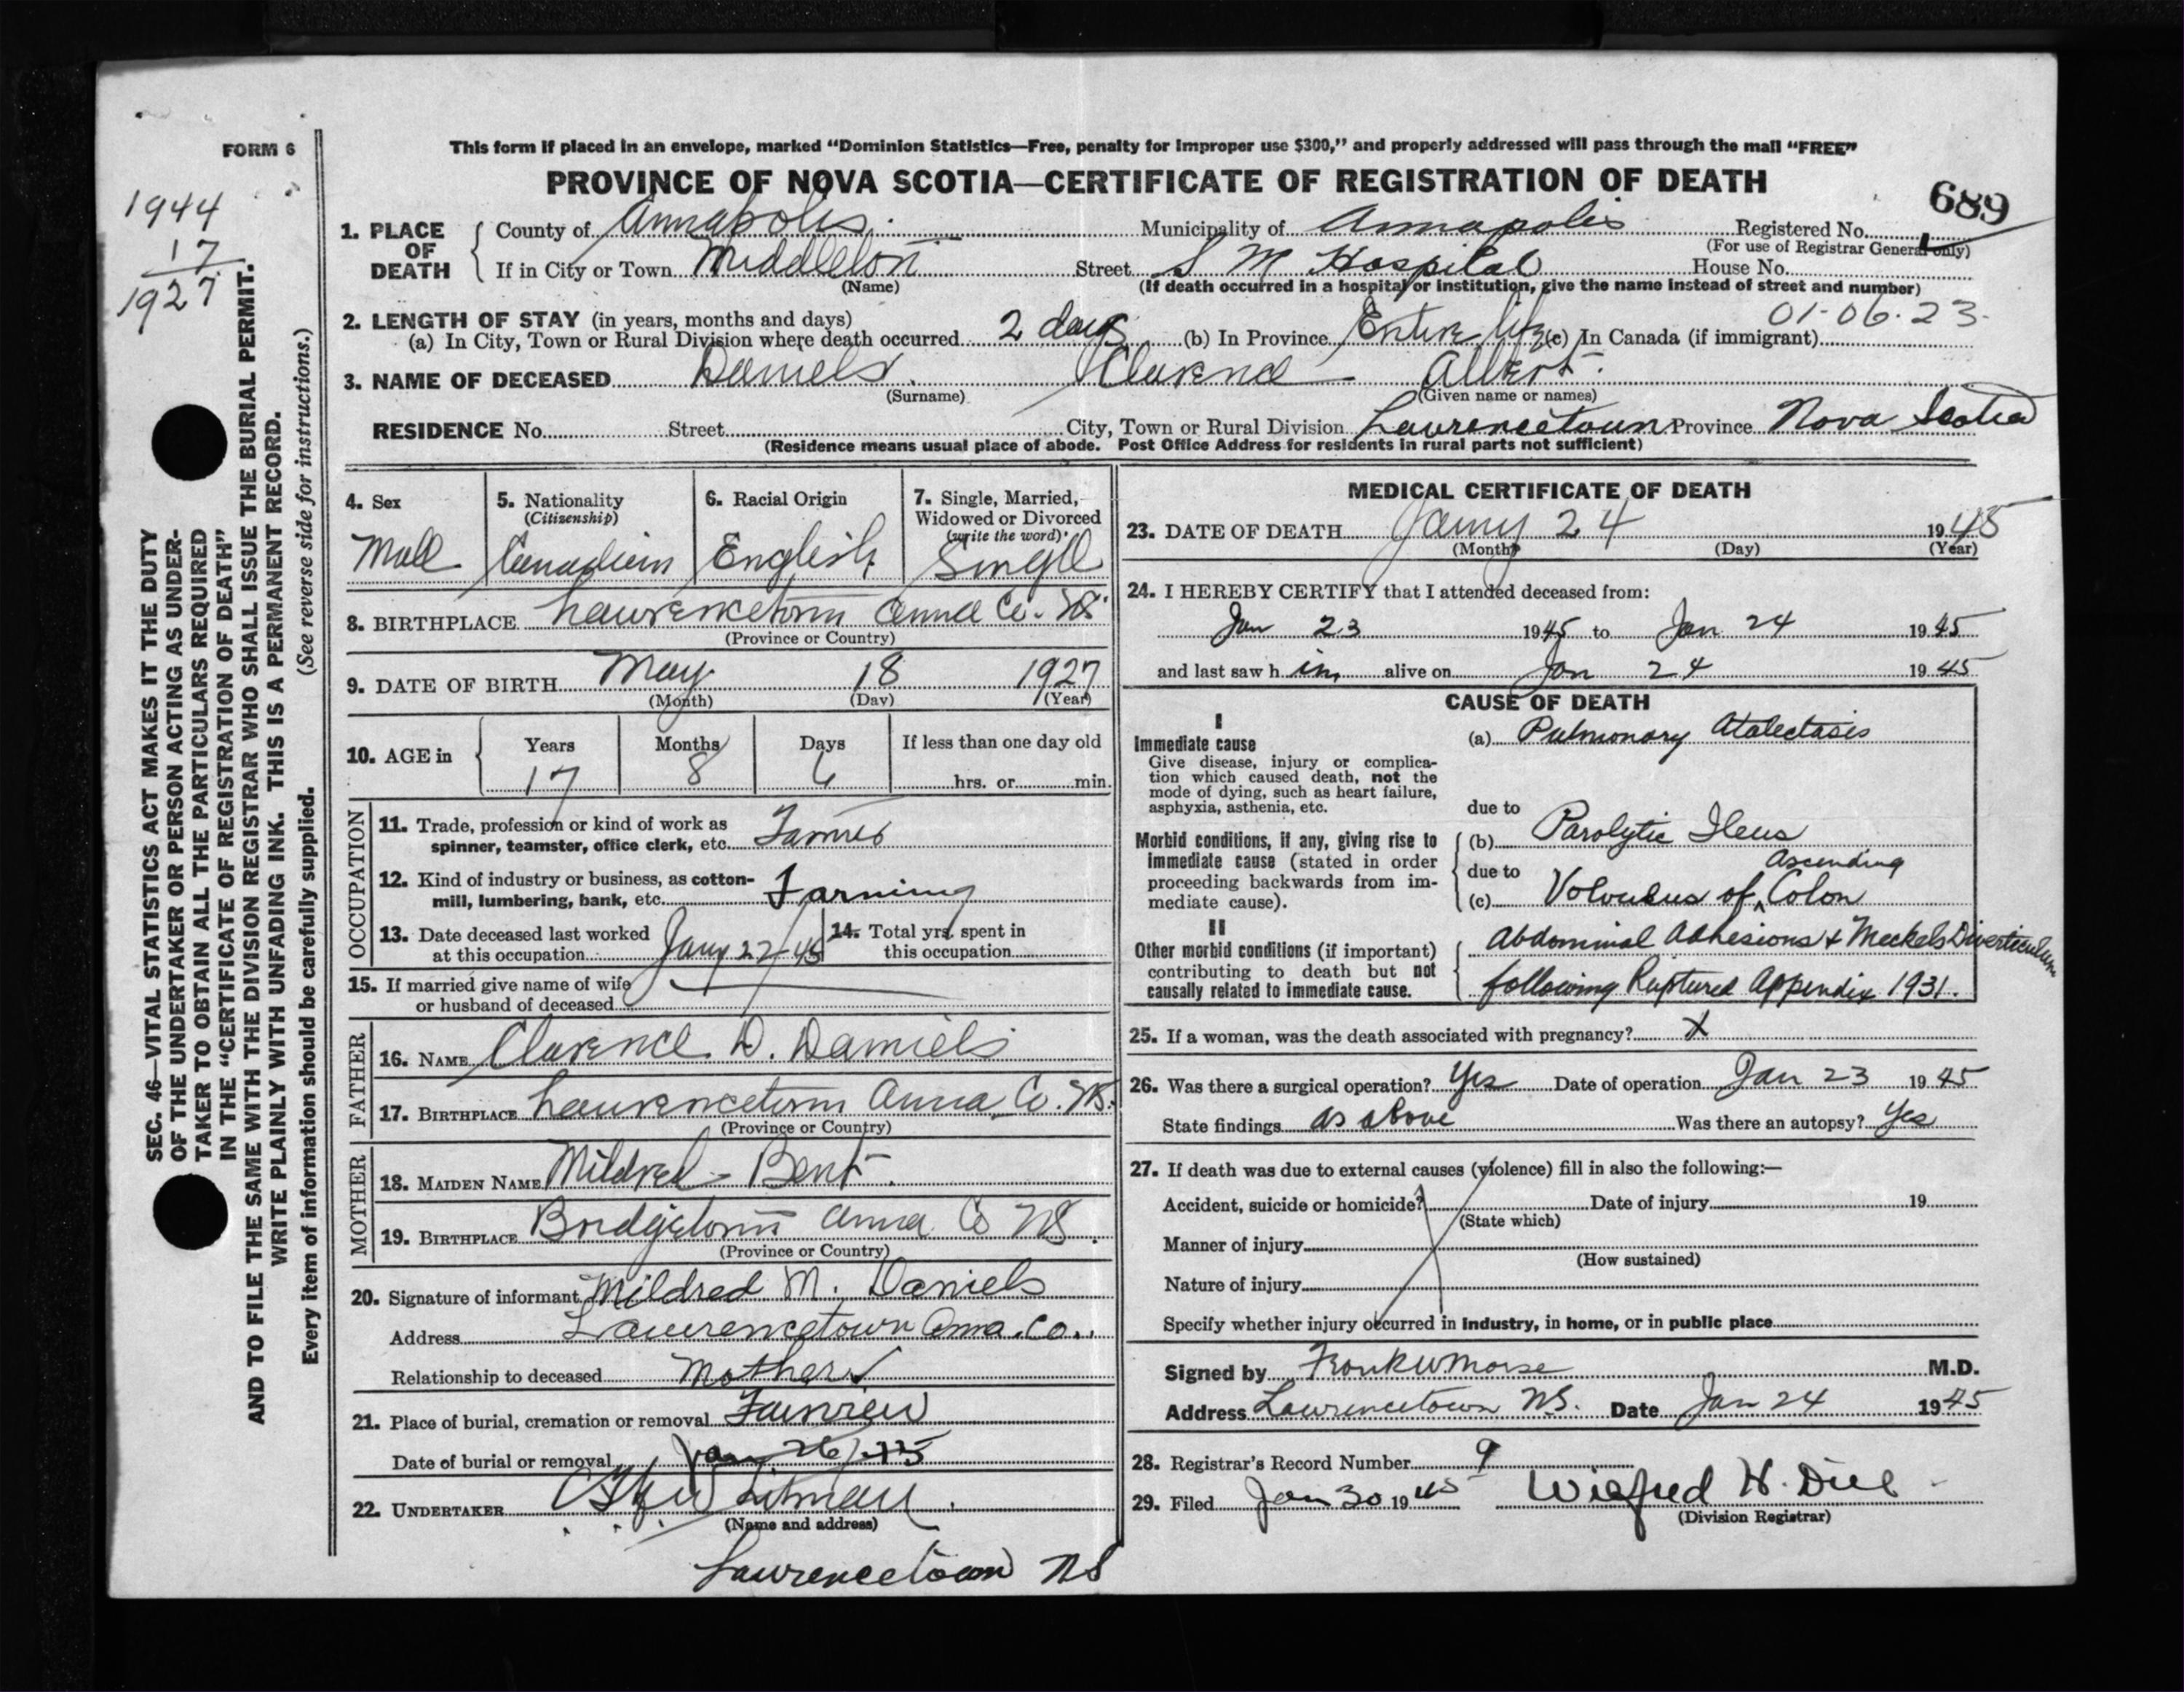 FORM 6
This form if placed in an envelope, marked "Dominion Statistics—Free, penalty for improper use $300," and properly addressed will pass through the mail "FREE"
PROVINCE OF NOVA SCOTIA—CERTIFICATE OF REGISTRATION OF DEATH
689
1944
17
1927
1. PLACE OF DEATH County of Annapolis Municipality of Annapolis Registered No.
(For use of Registrar General only)
If in City or Town Middleton Street S M Hospital House No.
(Name) (If death occurred in a hospital or institution, give the name instead of street and number)
01-06-23
2. LENGTH OF STAY (in years, months and days)
(a) In City, Town or Rural Division where death occurred 2 days (b) In Province Entire life (c) In Canada (if immigrant)
3. NAME OF DECEASED Daniels Clarence Albert
(Surname) (Given name or names)
RESIDENCE No. Street City, Town or Rural Division Lawrencetown Province Nova Scotia
(Residence means usual place of abode. Post Office Address for residents in rural parts not sufficient)
4. Sex
Male
5. Nationality
(Citizenship)
Canadian
6. Racial Origin
English
7. Single, Married,
Widowed or Divorced
(write the word)
Single
8. BIRTHPLACE Lawrencetown Anna Co. NS
(Province or Country)
9. DATE OF BIRTH May 18 1927
(Month) (Day) (Year)
10. AGE in Years Months Days If less than one day old
17 8 6 hrs. or min.
OCCUPATION
11. Trade, profession or kind of work as
spinner, teamster, office clerk, etc. Farmer
12. Kind of industry or business, as cotton-
mill, lumbering, bank, etc. Farming
13. Date deceased last worked
at this occupation Jany 22/45
14. Total yrs. spent in
this occupation
15. If married give name of wife
or husband of deceased
FATHER
16. NAME Clarence D. Daniels
17. BIRTHPLACE Lawrencetown Anna. Co. NS.
(Province or Country)
MOTHER
18. MAIDEN NAME Mildred Bent
19. BIRTHPLACE Bridgetown Anna Co NS.
(Province or Country)
20. Signature of informant Mildred M. Daniels
Address Lawrencetown Anna. Co.
Relationship to deceased Mother
21. Place of burial, cremation or removal Fairview
Date of burial or removal Jany 26/45
22. UNDERTAKER Whitman
(Name and address)
Lawrencetown NS
MEDICAL CERTIFICATE OF DEATH
23. DATE OF DEATH Jany 24 1945
(Month) (Day) (Year)
24. I HEREBY CERTIFY that I attended deceased from:
Jan 23 1945 to Jan 24 1945
and last saw him alive on Jan 24 1945
CAUSE OF DEATH
I
Immediate cause
Give disease, injury or complica-
tion which caused death, not the
mode of dying, such as heart failure,
asphyxia, asthenia, etc.
(a) Pulmonary Atalectasis
due to
Morbid conditions, if any, giving rise to
immediate cause (stated in order
proceeding backwards from im-
mediate cause).
(b) Parolytic Ileus
due to
ascending
(c) Volvulus of Colon
II
Other morbid conditions (if important)
contributing to death but not
causally related to immediate cause.
Abdominal Adhesions + Meckels Diverticulum
following Ruptured Appendix 1931.
25. If a woman, was the death associated with pregnancy? X
26. Was there a surgical operation? Yes Date of operation Jan 23 1945
State findings as above Was there an autopsy? Yes
27. If death was due to external causes (violence) fill in also the following:—
Accident, suicide or homicide? Date of injury 19
(State which)
Manner of injury
(How sustained)
Nature of injury
Specify whether injury occurred in industry, in home, or in public place
Signed by Frank W Morse M.D.
Address Lawrencetown N.S. Date Jan 24 1945
28. Registrar's Record Number 9
29. Filed Jan 30 1945 Wilfred H. Dill
(Division Registrar)
SEC. 46—VITAL STATISTICS ACT MAKES IT THE DUTY
OF THE UNDERTAKER OR PERSON ACTING AS UNDER-
TAKER TO OBTAIN ALL THE PARTICULARS REQUIRED
IN THE "CERTIFICATE OF REGISTRATION OF DEATH"
AND TO FILE THE SAME WITH THE DIVISION REGISTRAR WHO SHALL ISSUE THE BURIAL PERMIT.
WRITE PLAINLY WITH UNFADING INK. THIS IS A PERMANENT RECORD.
Every item of information should be carefully supplied. (See reverse side for instructions.)